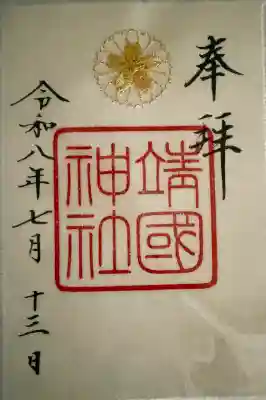 奉拝
靖國
神社
令和八年七月十三日